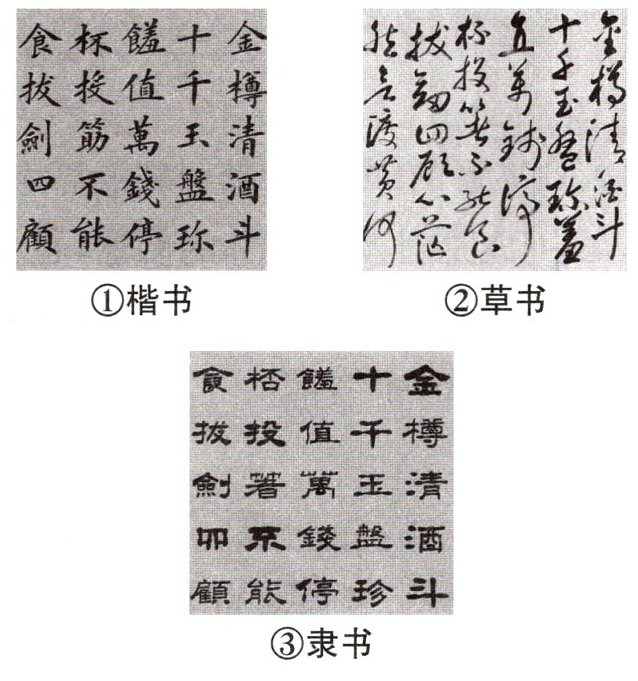 金樽清酒斗
十千玉盤珎
饈值萬錢停
杯投筯不能
食拔劍四顧
①楷书
金樽清酒斗
十千玉盤珎羞
直萬錢停
杯投箸不能食
拔劍四顧心茫
然欲渡黄河
②草书
金樽清酒斗
十千玉盤珍
饈值萬錢停
桮投箸不能
食拔劍四顧
③隶书